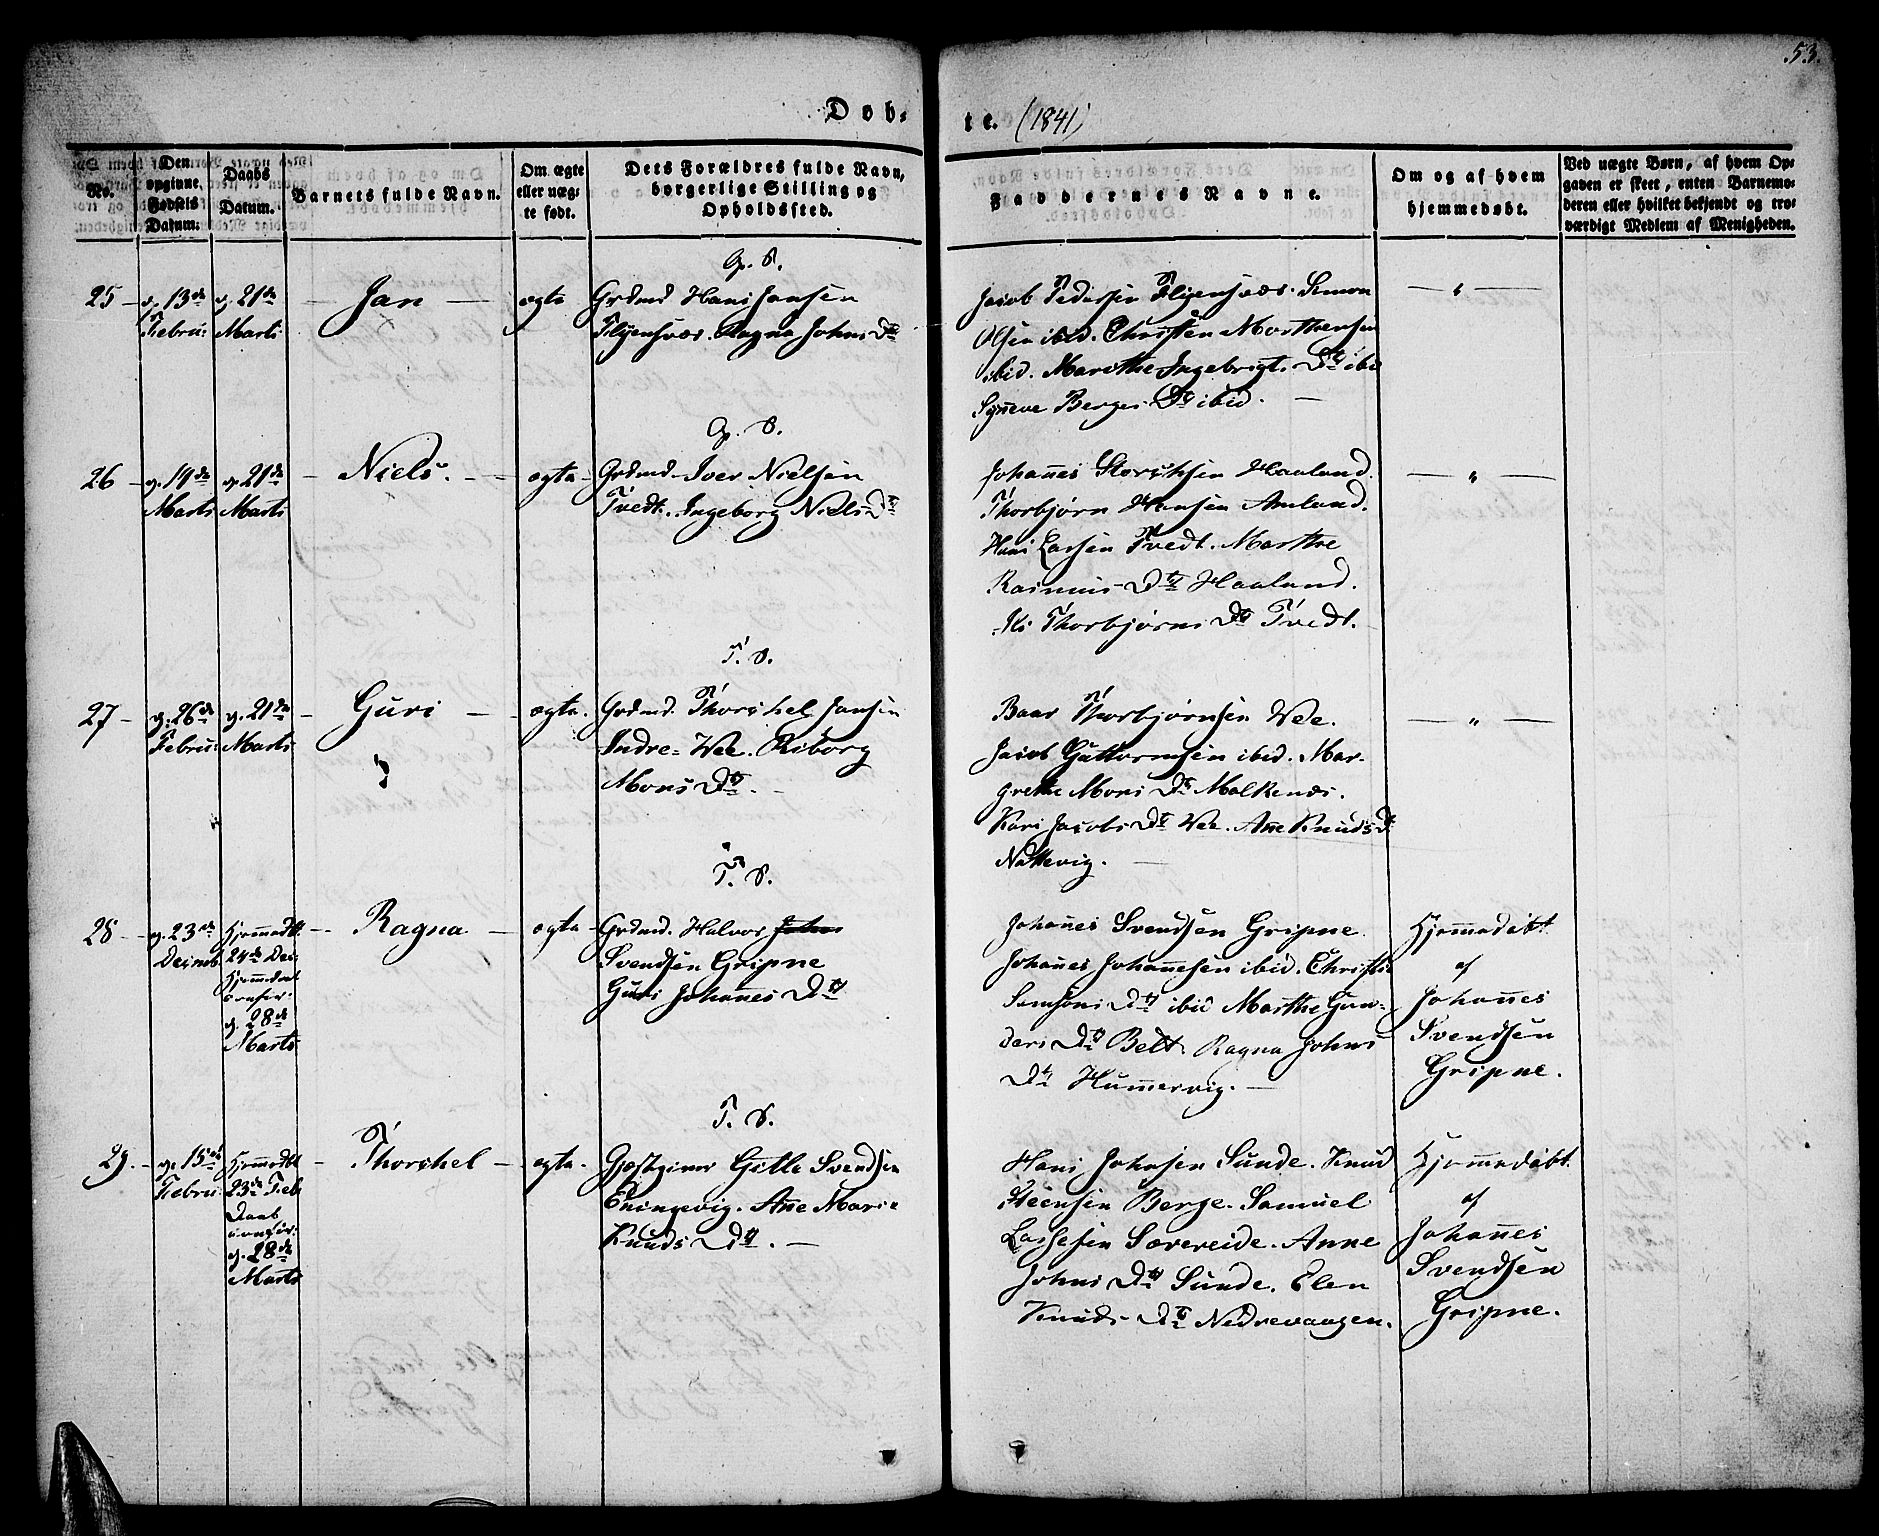 53.
Døb-
te. (1841)
No.
Den
opgivne
Fødsels
Datum.
Daabs
Datum.
Barnets fulde Navn.
Om ægte
eller uæg-
te født.
Dets Forældres fulde Navn,
borgerlige Stilling og
Opholdssted.
Faddernes Navne.
Om og af hvem
hjemmedøbt.
Ved uægte Børn, af hvem Op-
gaven er skeet, enten Barnemo-
deren eller hvilket bekjendt og tro-
værdigt Medlem af Menigheden.
25 - d. 13de
Febru:
d. 21de
Marts
- Jan -
ægte
Grdmd Hans Jansen
Johns Dtr
Jacob Pedersen Simon
Olsen ibid. Christen Morthensen
ibid. Marithe Ingebrigt. Dtr ibid
Syneve Berges Dtr ibid. -
- " -
26 - d. 19de
Marts
d. 21de
Marts
- Niels. -
ægte -
Grdmd. Iver Nielsen
Tvedt. Ingeborg Niels Dtr
Johannes Haaland.
Thorbjørn Hansen Amland.
Hans Larsen Tvedt. Marthe
Rasmus Dtr Haaland.
Thorbjørns Dtr Tvedt.
- " -
T. S.
27 - d. 26de
Febru:
d. 21de
Marts
- Guri -
ægte.
Grdmd. Thorchel Jansen
Indre-Vee. Riborg
Mons Dtr. -
Baar Thorbjørnsen Vee.
Jacob Guttormsen ibid. Mar-
grethe Mons Dtr Malkenæs.
Kari Jacobs Dtr Vee. Anne Knuds Dtr
Nattevig. -
- " -
T. S.
28 - d. 23de
Decmb.
Hjemmedbt.
24de Dec.
d. 28de
Marts
- Ragna -
ægte -
Grdmd. Halvor John
Svendsen Gripne
Guri Johannes Dtr
Johannes Svendsen Gripne
Johannes Johannesen ibid. Christi
Samsons Dtr ibid Marthe Gun-
ders Dtr Belt. Ragna Johns
Dtr Hummervig. -
Hjemmedøbt
af
Johannes
Svendsen
Gripne.
T. S.
29. - d. 15de
Febru:
Hjemmedbt
23de Feb.
Daab
d. 28de
Marts
- Thorchel -
ægte.
Gjæstgiver Gitle Svendsen
Eningevig. Ane Marie
Knuds Dtr. -
Hans Johnsen Sunde. Knud
Steensen Berge. Samuel
Lassesen Særereide. Anne
Johns Dtr Sunde. Elen
Knuds Dtr Nedrevaagen.
Hjemmedøbt
af
Johannes
Svendsen
Gripne.